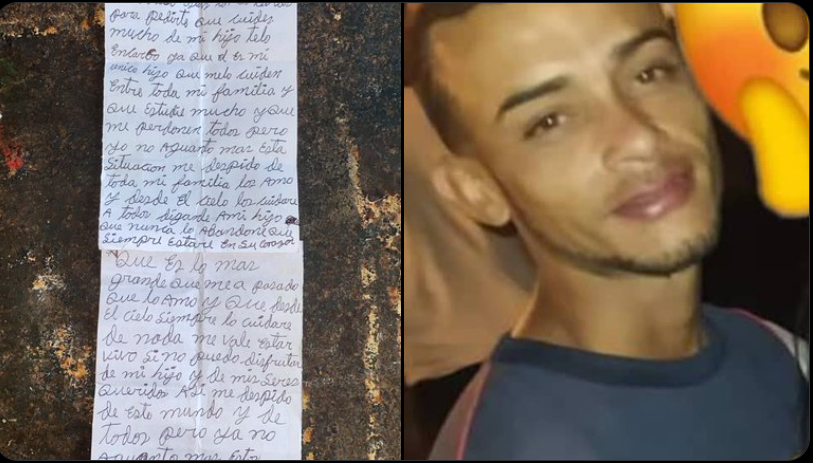 para pedirte que cuiden
mucho de mi hijo telo
Encargo ya que el Es mi
unico hijo que melo cuiden
Entre toda mi familia y
que Estudie mucho y que
me perdonen todos pero
yo no Aguanto mas Esta
Situacion me despido de
toda mi familia los Amo
y desde El cielo los cuidare
A todos digande Ami hijo
que nunca lo Abandone que
Siempre Estare En Su corazon
Que Es lo mas
grande que me a pasado
que lo Amo y Que desde
El cielo Siempre lo cuidare
De nada me vale Estar
vivo Si no puedo disfrutar
de mi hijo y de mis Seres
queridos ASi me despido
de Este mundo y de
todos pero ya no
Aguanto mas Esta